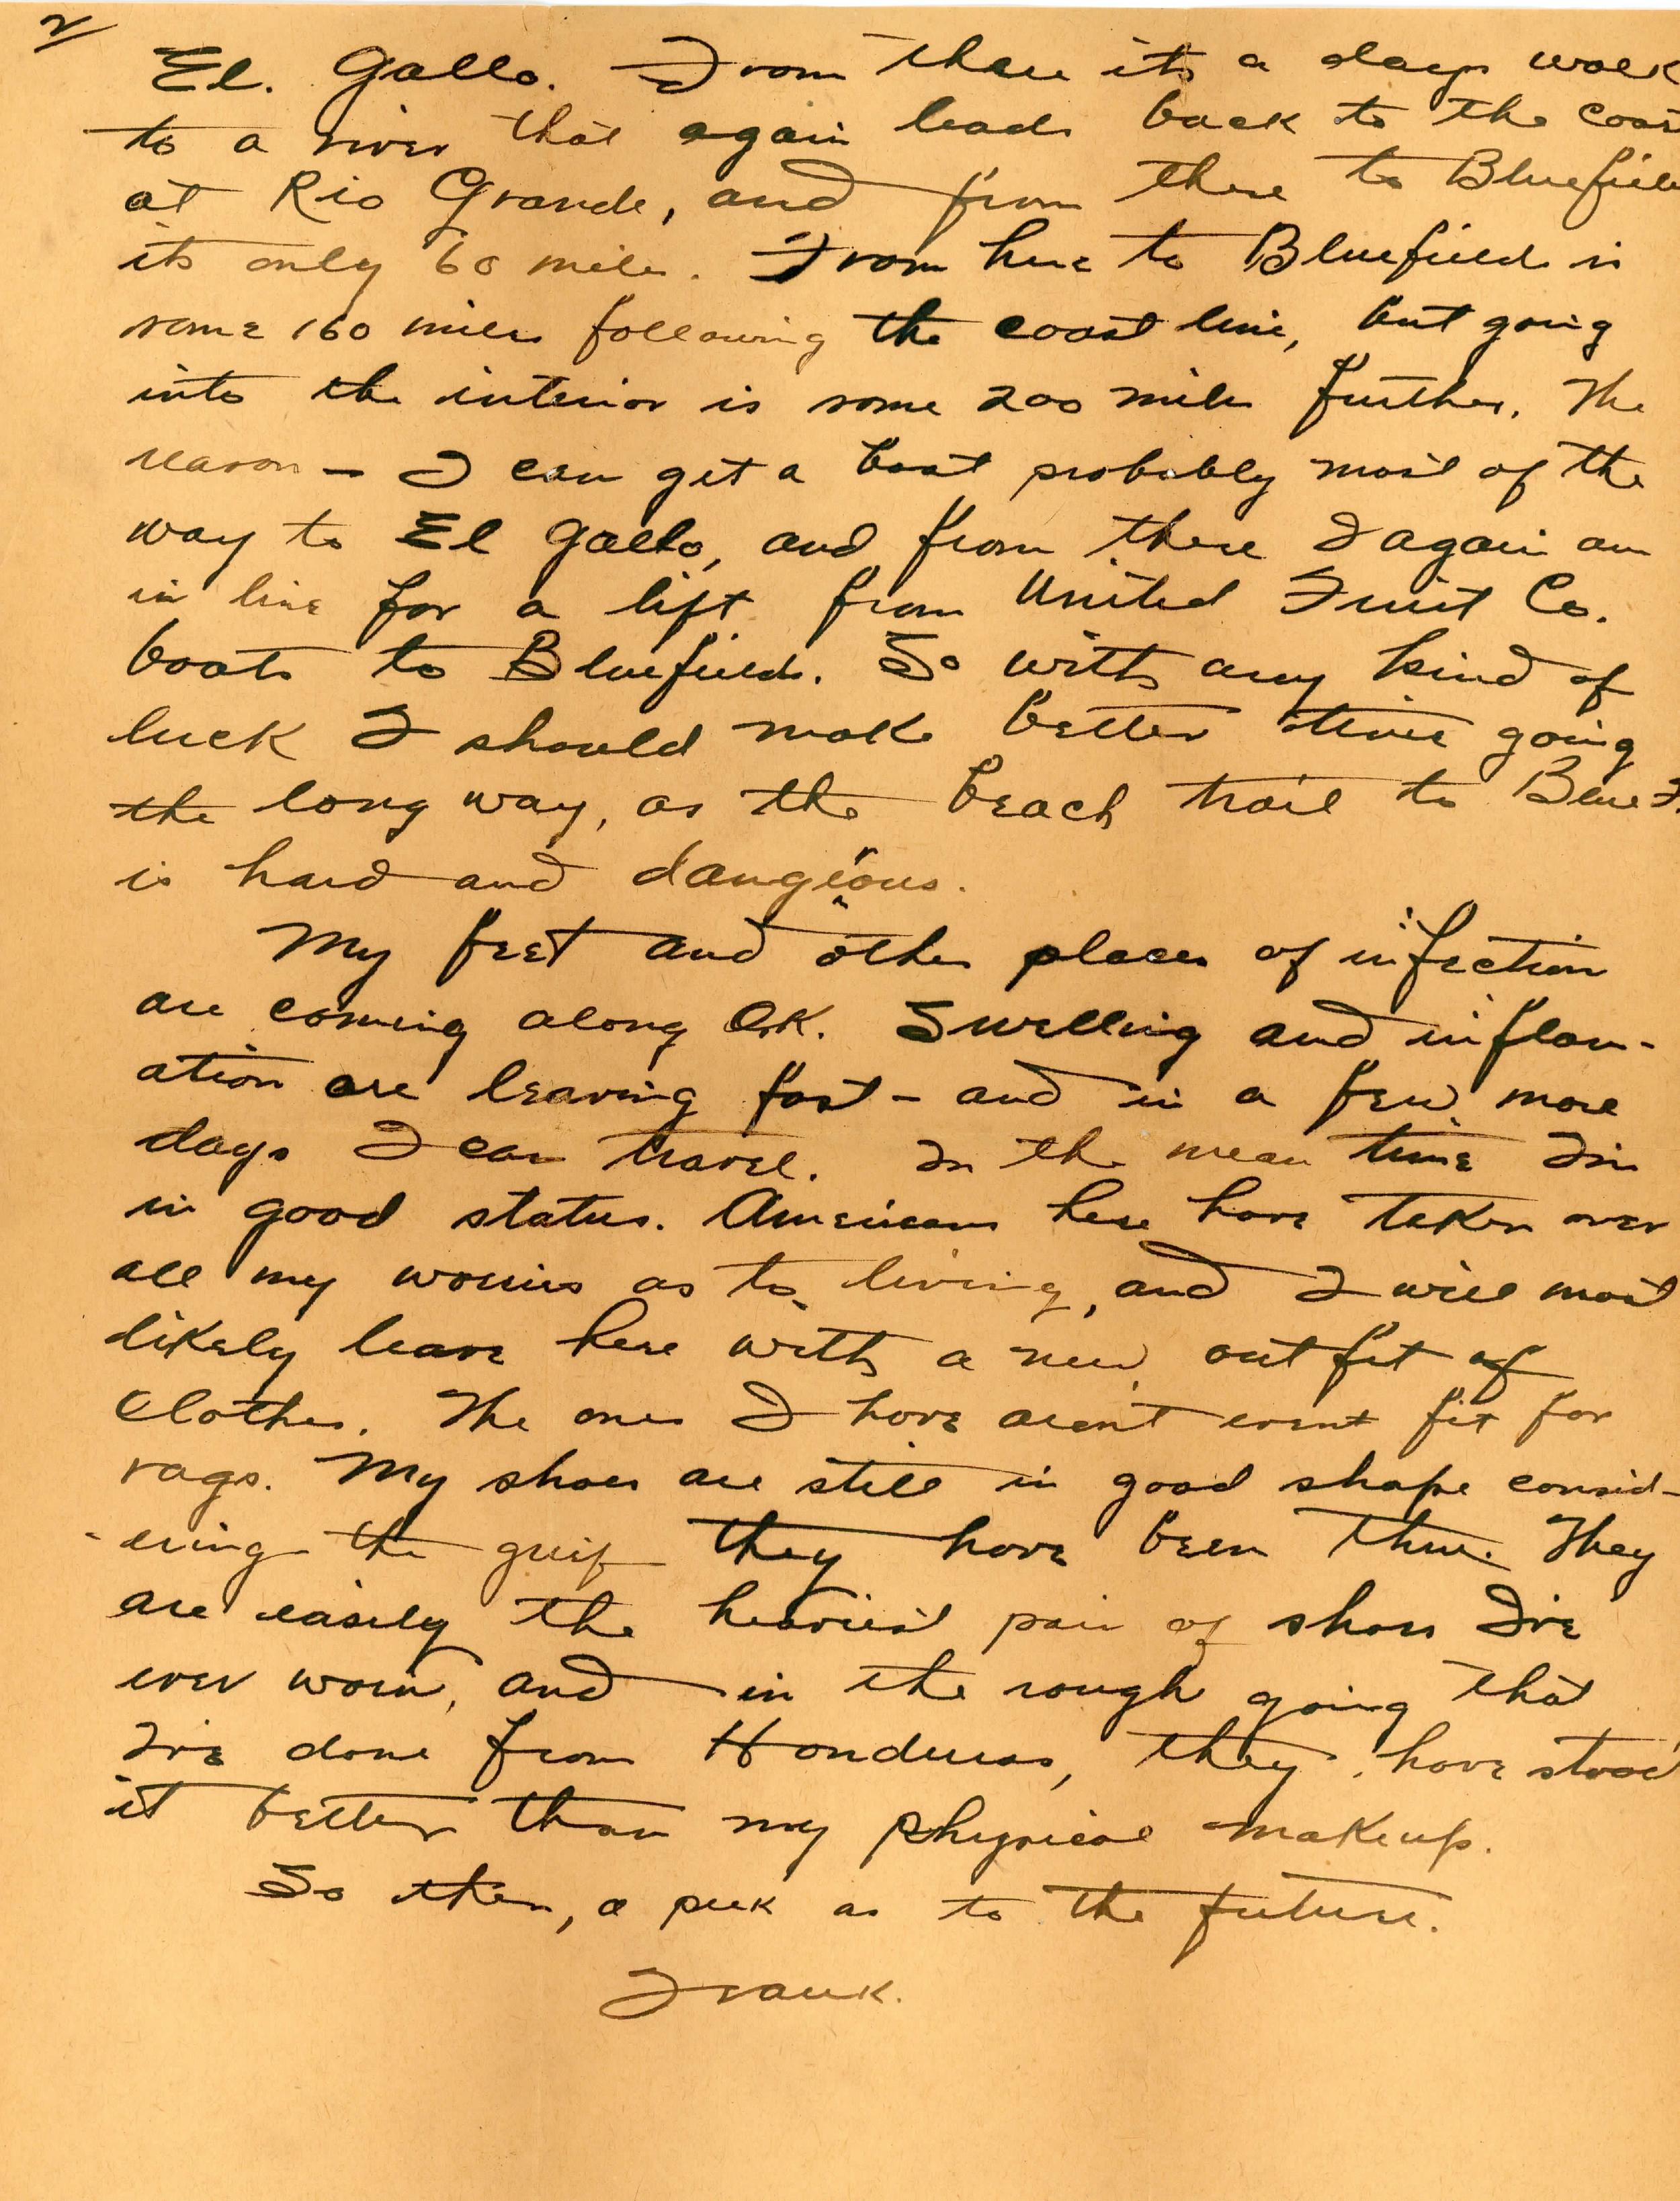 2/
El. Gallo. From there its a days walk
to a river that again leads back to the coast
at Rio Grande, and from there to Bluefields
its only 60 miles. From here to Bluefields is
some 160 miles following the coast line, but going
into the interior is some 200 miles further. The
reason — I can get a boat probably most of the
way to El Gallo, and from there I again am
in line for a lift from United Fruit Co.
boats to Bluefields. So with any kind of
luck I should make better time going
the long way, as the beach trail to Blue F.
is hard and dangerous.
My feet and other places of infection
are coming along O.K. Swelling and inflam-
ation are leaving fast – and in a few more
days I can travel. In the mean time I'm
in good status. Americans here have taken over
all my worries as to living, and I will most
likely leave here with a new outfit of
clothes. The ones I have aren't event fit for
rags. My shoes are still in good shape consid-
-ering the grief they have been thru. They
are easily the heaviest pair of shoes I've
ever worn, and in the rough going that
I've done from Honduras, they have stood
it better than my physical makeup.
So then, a peek as to the future.
Frank.